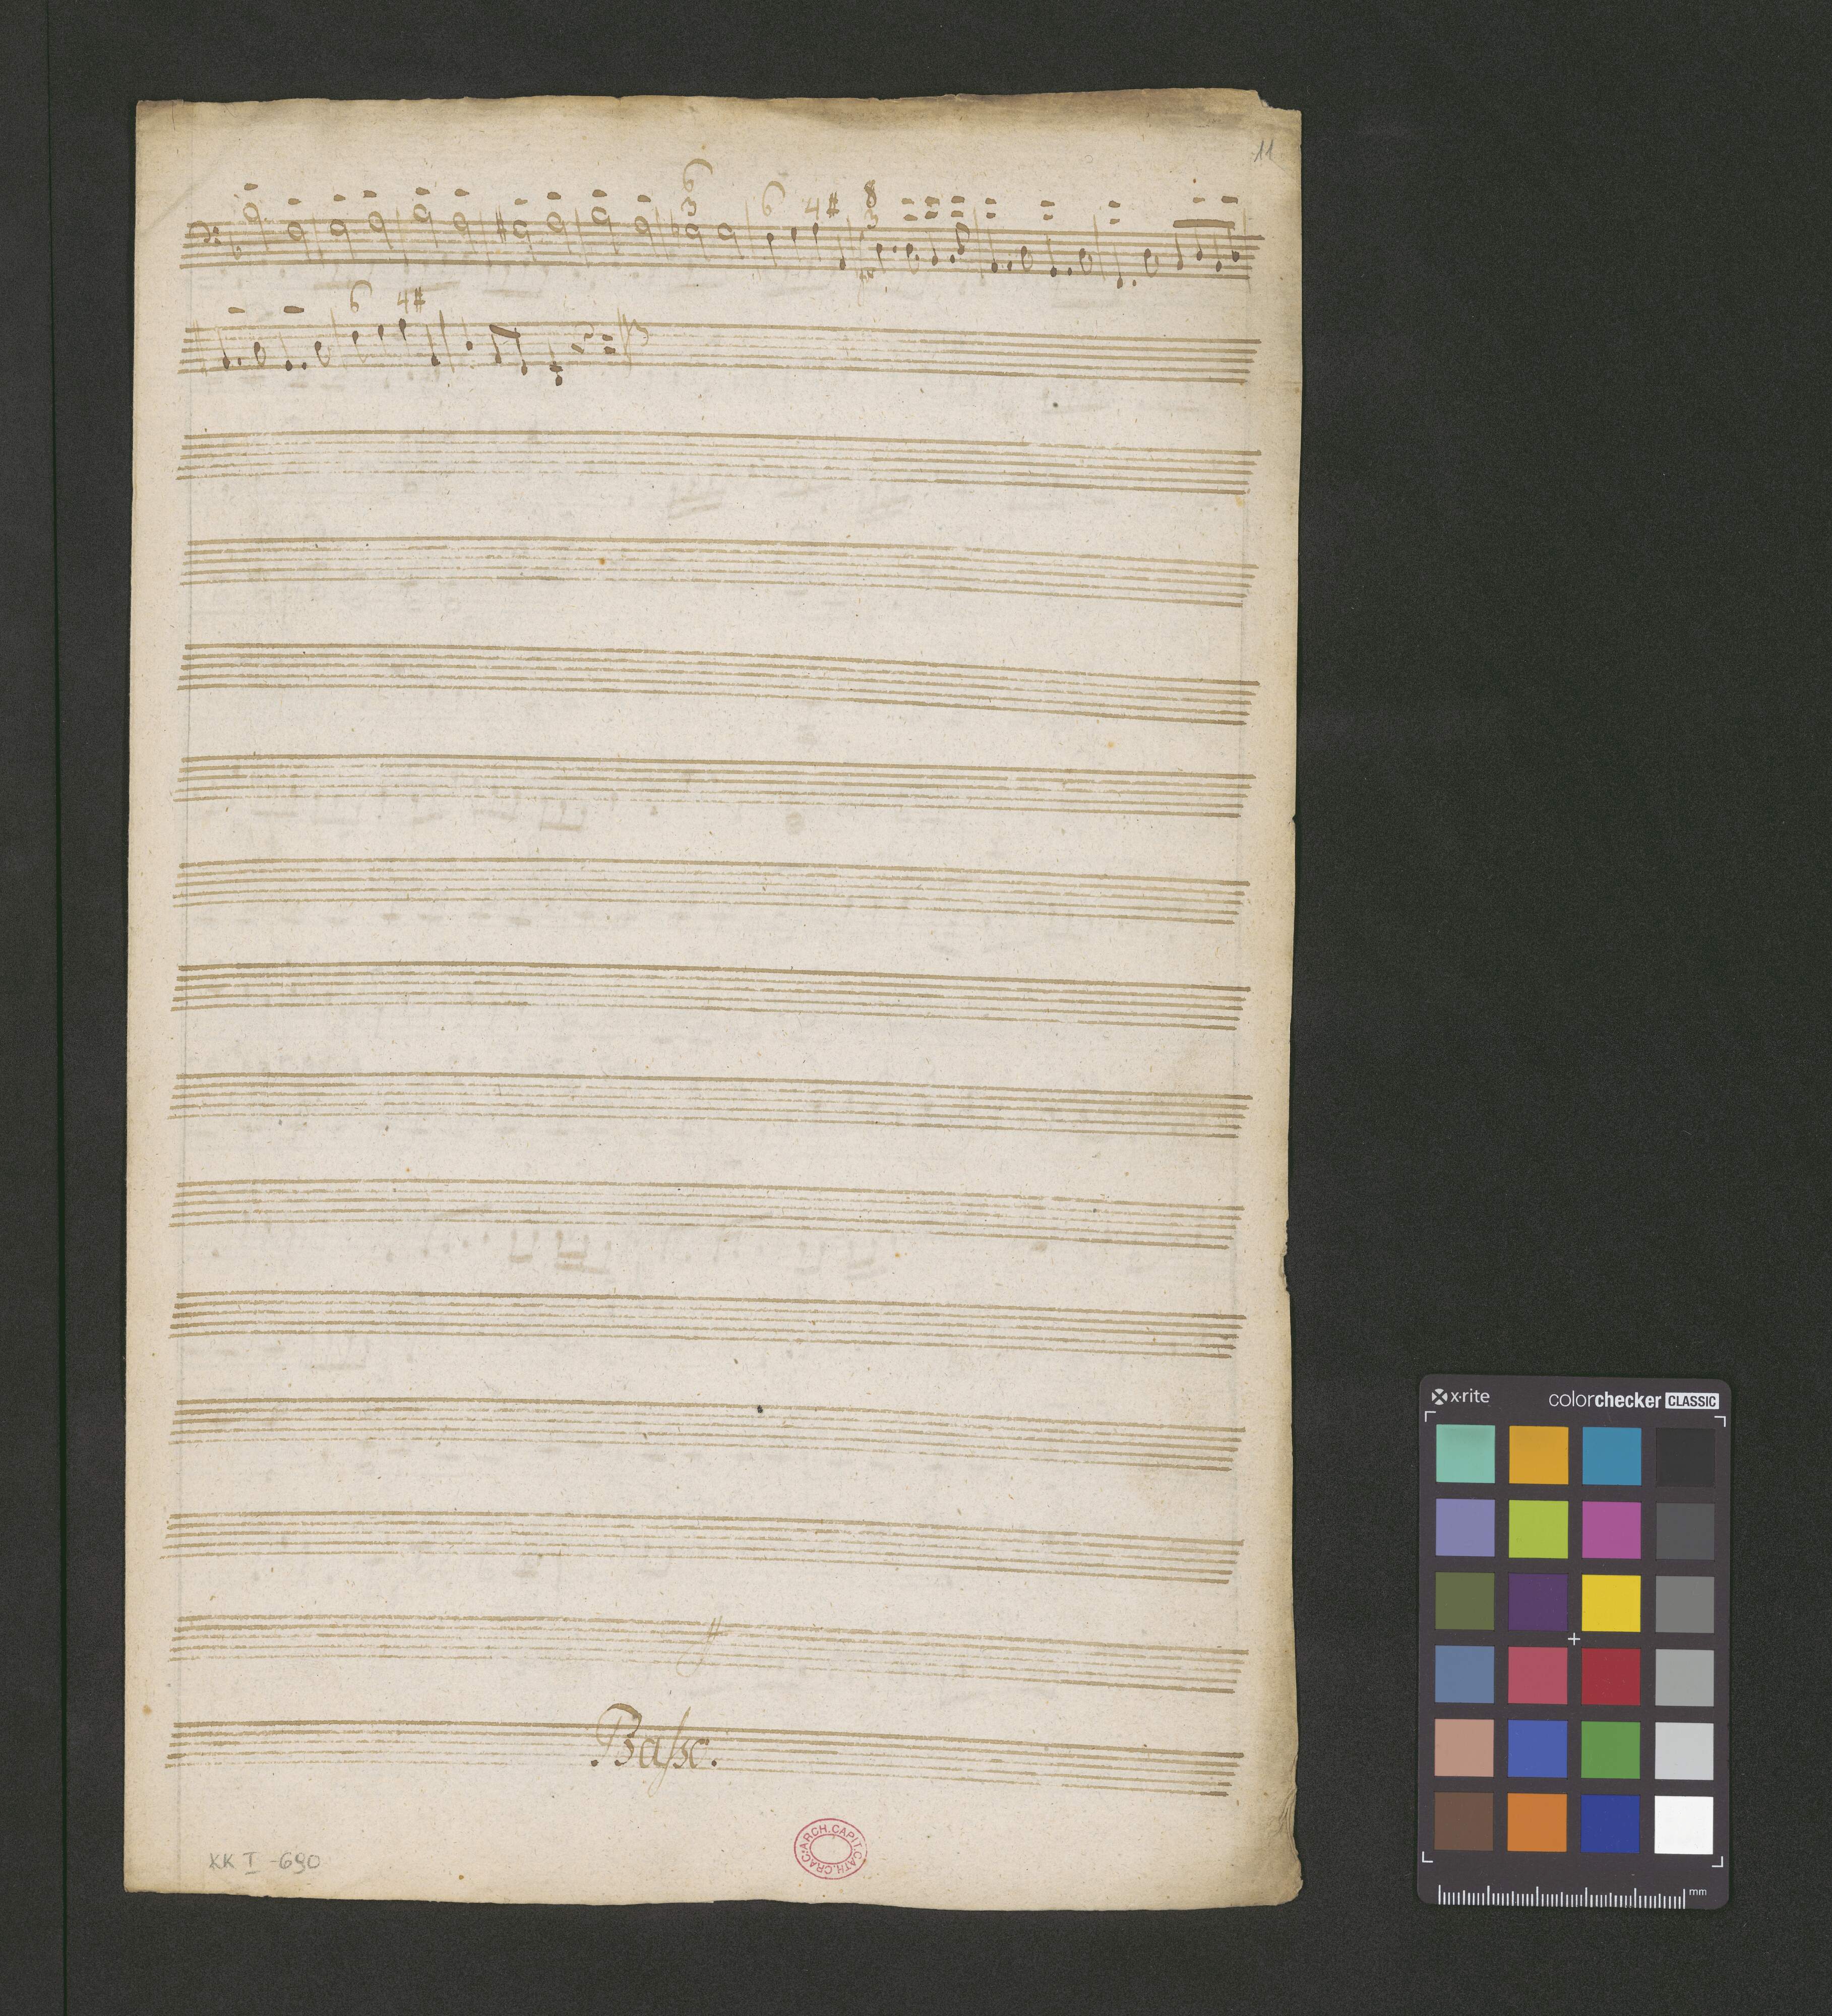 11
6
3 6 4# 8
3
fo
6 4#
Basso.
ARCH.CAPIT.CATH.CRAC.
KK I-690
x-rite
colorchecker CLASSIC
mm